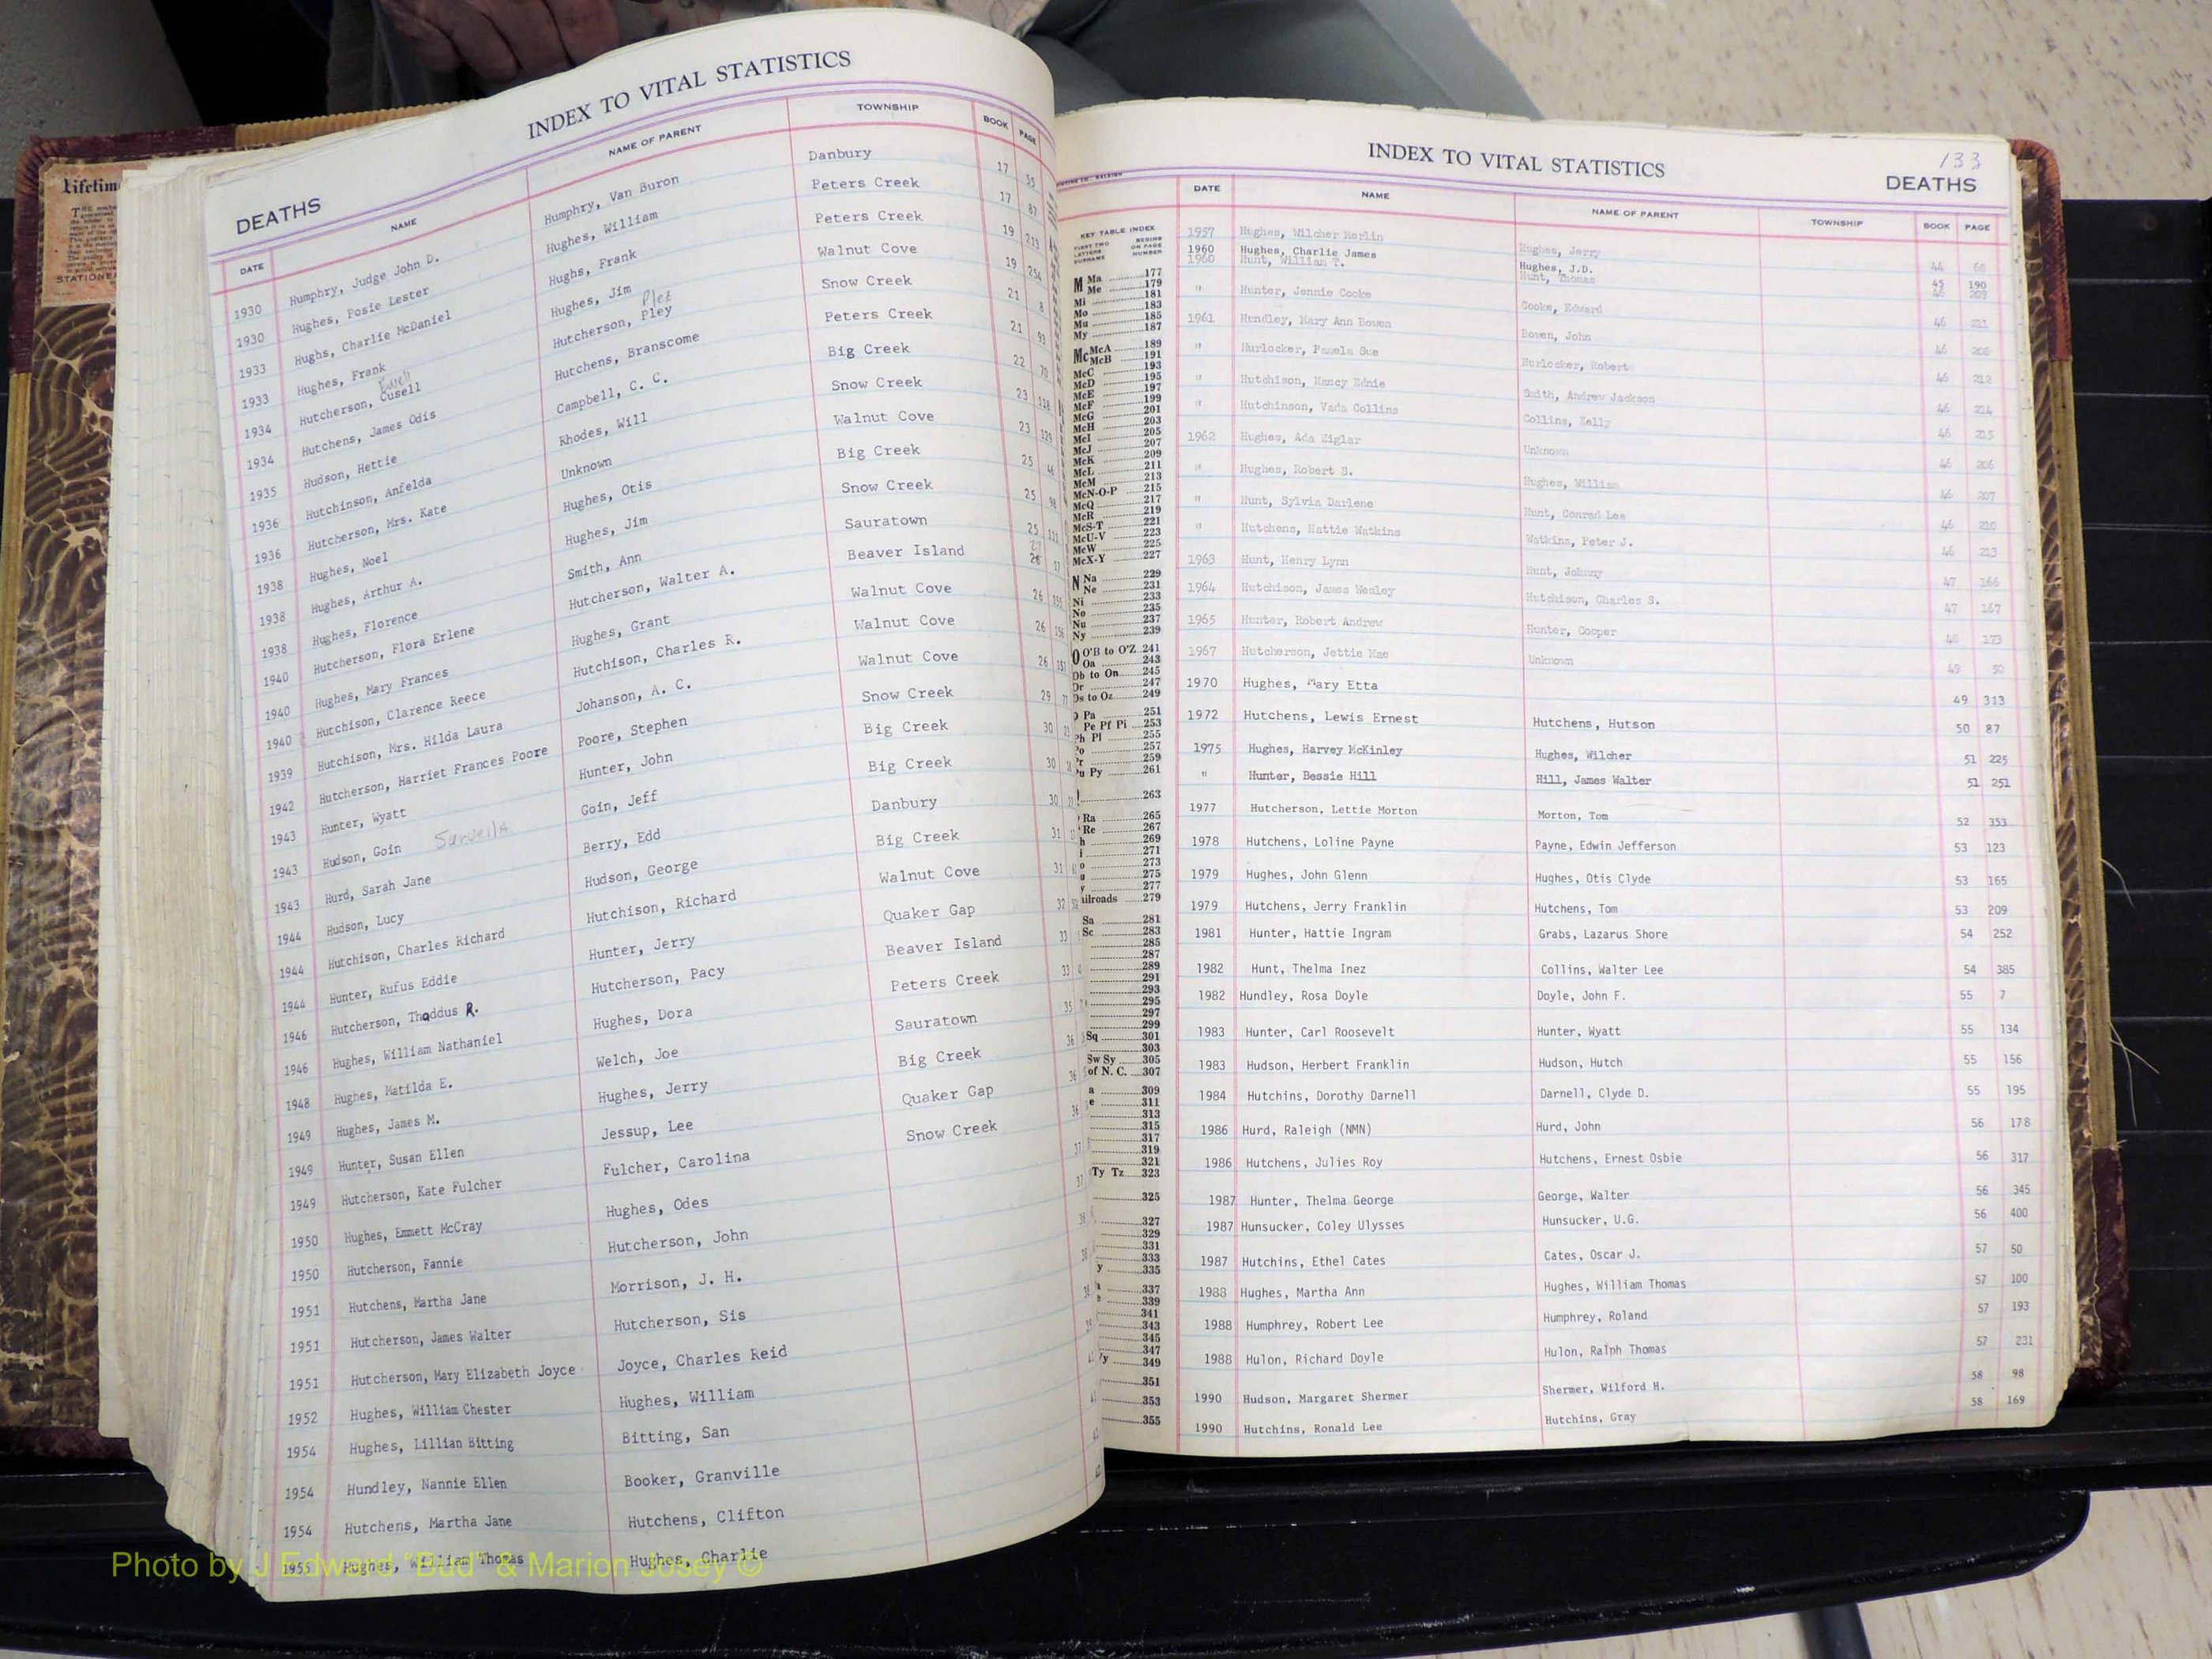 INDEX TO VITAL STATISTICS
DEATHS
DATE NAME NAME OF PARENT TOWNSHIP BOOK PAGE
1930 Humphry, Judge John D. Humphry, Van Buron Danbury 17 55
1930 Hughes, Posie Lester Hughes, William Peters Creek 17 87
1933 Hughs, Charlie McDaniel Hughs, Frank Peters Creek 19 213
1933 Hughes, Frank Hughes, Jim Walnut Cove 19 254
Plez
1934 Hutcherson, Cusell Hutcherson, Pley Snow Creek 21 8
1934 Hutchens, James Odis Hutchens, Branscome Peters Creek 21 93
1935 Hudson, Hettie Campbell, C. C. Big Creek 22 70
1936 Hutchinson, Anfelda Rhodes, Will Snow Creek 23 128
1936 Hutcherson, Mrs. Kate Unknown Walnut Cove 23 129
1938 Hughes, Noel Hughes, Otis Big Creek 25 46
1938 Hughes, Arthur A. Hughes, Jim Snow Creek 25 98
1938 Hughes, Florence Smith, Ann Sauratown 25 111
1940 Hutcherson, Flora Erlene Hutcherson, Walter A. Beaver Island 26 17
1940 Hughes, Mary Frances Hughes, Grant Walnut Cove 26 155
1940 Hutchison, Clarence Reece Hutchison, Charles R. Walnut Cove 26 156
1939 Hutchison, Mrs. Hilda Laura Johanson, A. C. Walnut Cove 26 151
1942 Hutcherson, Harriet Frances Poore Poore, Stephen Snow Creek 29
1943 Hunter, Wyatt Hunter, John Big Creek 30
1943 Hudson, Goin Goin, Jeff Big Creek 30
1943 Hurd, Sarah Jane Berry, Edd Danbury 30
1944 Hudson, Lucy Hudson, George Big Creek 31
1944 Hutchison, Charles Richard Hutchison, Richard Walnut Cove 31
1944 Hunter, Rufus Eddie Hunter, Jerry Quaker Gap 32
1946 Hutcherson, Thaddus R. Hutcherson, Pacy Beaver Island 33
1946 Hughes, William Nathaniel Hughes, Dora Peters Creek 33
1948 Hughes, Matilda E. Welch, Joe Sauratown 35
1949 Hughes, James M. Hughes, Jerry Big Creek 36
1949 Hunter, Susan Ellen Jessup, Lee Quaker Gap 36
1949 Hutcherson, Kate Fulcher Fulcher, Carolina Snow Creek 36
1950 Hughes, Emmett McCray Hughes, Odes 37
1950 Hutcherson, Fannie Hutcherson, John 37
1951 Hutchens, Martha Jane Morrison, J. H.
1951 Hutcherson, James Walter Hutcherson, Sis
1951 Hutcherson, Mary Elizabeth Joyce Joyce, Charles Reid
1952 Hughes, William Chester Hughes, William
1954 Hughes, Lillian Bitting Bitting, San
1954 Hundley, Nannie Ellen Booker, Granville
1954 Hutchens, Martha Jane Hutchens, Clifton
1955 Hughes, William Thomas Hughes, Charlie
KEY TABLE INDEX
FIRST TWO LETTERS SURNAME BEGINS ON PAGE NUMBER
M Ma 177
Me 179
Mi 181
Mo 183
Mu 185
My 187
Mc McA 189
McB 191
McC 193
McD 195
McE 197
McF 199
McG 201
McH 203
McI 205
McJ 207
McK 209
McL 211
McM 213
McN-O-P 215
McQ 217
McR 219
McS-T 221
McU-V 223
McW 225
McX-Y 227
N Na 229
Ne 231
Ni 233
No 235
Nu 237
Ny 239
O O'B to O'Z 241
Oa 243
Ob to On 245
Or 247
Os to Oz 249
Pa 251
Pe Pf Pi 253
Ph Pl 255
Po 257
Pr 259
Pu Py 261
263
Ra 265
Re 267
269
271
273
275
277
ilroads 279
Sa 281
Sc 283
285
287
289
291
293
295
297
299
Sq 301
303
Sw Sy 305
of N. C. 307
a 309
e 311
313
315
317
319
321
Ty Tz 323
325
327
329
331
333
y 335
337
339
341
343
345
347
349
351
353
355
INDEX TO VITAL STATISTICS
133
DEATHS
DATE NAME NAME OF PARENT TOWNSHIP BOOK PAGE
1957 Hughes, Wilcher Merlin Hughes, Jerry 44 68
1960 Hughes, Charlie James Hughes, J.D. 45 190
1960 Hunt, William T. Hunt, Thomas 46 209
" Hunter, Jennie Cooke Cooke, Edward 46 211
1961 Hundley, Mary Ann Bowen Bowen, John 46 208
" Hurlocker, Pamela Sue Hurlocker, Robert 46 212
" Hutchison, Nancy Ednie Smith, Andrew Jackson 46 214
" Hutchinson, Vada Collins Collins, Kelly 46 215
1962 Hughes, Ada Ziglar Unknown 46 206
" Hughes, Robert S. Hughes, William 46 207
" Hunt, Sylvia Darlene Hunt, Conrad Lee 46 210
" Hutchens, Hattie Watkins Watkins, Peter J. 46 213
1963 Hunt, Henry Lynn Hunt, Johnny 47 166
1964 Hutchison, James Wesley Hutchison, Charles S. 47 167
1965 Hunter, Robert Andrew Hunter, Cooper 48 173
1967 Hutcherson, Jettie Mae Unknown 49 50
1970 Hughes, Mary Etta 49 313
1972 Hutchens, Lewis Ernest Hutchens, Hutson 50 87
1975 Hughes, Harvey McKinley Hughes, Wilcher 51 225
" Hunter, Bessie Hill Hill, James Walter 51 251
1977 Hutcherson, Lettie Morton Morton, Tom 52 353
1978 Hutchens, Loline Payne Payne, Edwin Jefferson 53 123
1979 Hughes, John Glenn Hughes, Otis Clyde 53 165
1979 Hutchens, Jerry Franklin Hutchens, Tom 53 209
1981 Hunter, Hattie Ingram Grabs, Lazarus Shore 54 252
1982 Hunt, Thelma Inez Collins, Walter Lee 54 385
1982 Hundley, Rosa Doyle Doyle, John F. 55 7
1983 Hunter, Carl Roosevelt Hunter, Wyatt 55 134
1983 Hudson, Herbert Franklin Hudson, Hutch 55 156
1984 Hutchins, Dorothy Darnell Darnell, Clyde D. 55 195
1986 Hurd, Raleigh (NMN) Hurd, John 56 178
1986 Hutchens, Julies Roy Hutchens, Ernest Osbie 56 317
1987 Hunter, Thelma George George, Walter 56 345
1987 Hunsucker, Coley Ulysses Hunsucker, U.G. 56 400
1987 Hutchins, Ethel Cates Cates, Oscar J. 57 50
1988 Hughes, Martha Ann Hughes, William Thomas 57 100
1988 Humphrey, Robert Lee Humphrey, Roland 57 193
1988 Hulon, Richard Doyle Hulon, Ralph Thomas 57 231
1990 Hudson, Margaret Shermer Shermer, Wilford H. 58 98
1990 Hutchins, Ronald Lee Hutchins, Gray 58 169
Photo by J Edward "Bud" & Marion Josey ©